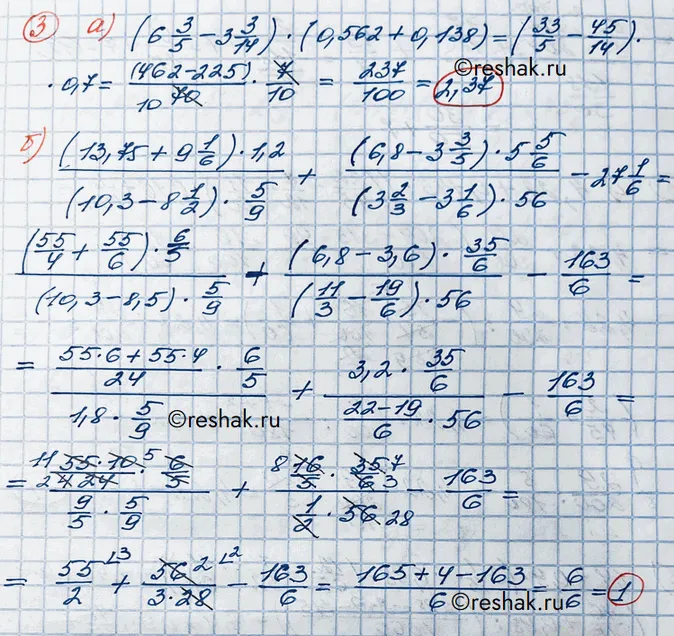 3 а) (6 3/5 − 3 3/14) · (0,562 + 0,138) = (33/5 − 45/14) ·
· 0,7 = (462−225)/70 · 7/10 = 237/100 = 2,37
10
©reshak.ru
б) ((13,75 + 9 1/6) · 1,2)/((10,3 − 8 1/2) · 5/9) + ((6,8 − 3 3/5) · 5 5/6)/((3 2/3 − 3 1/6) · 56) − 27 1/6 =
((55/4 + 55/6) · 6/5)/((10,3 − 8,5) · 5/9) + ((6,8 − 3,6) · 35/6)/((11/3 − 19/6) · 56) − 163/6 =
= ((55·6 + 55·4)/24 · 6/5)/(1,8 · 5/9) + (3,2 · 35/6)/((22−19)/6 · 56) − 163/6 =
©reshak.ru
= (11 55·10 5/2 4 24 · 6/5)/(9/5 · 5/9) + (8 16/5 · 35 7/6 3)/(1/2 · 56 28) − 163/6 =
= 55/2 ⌊3 + 56 2/3·28 ⌊2 − 163/6 = (165 + 4 − 163)/6 = 6/6 = 1
©reshak.ru